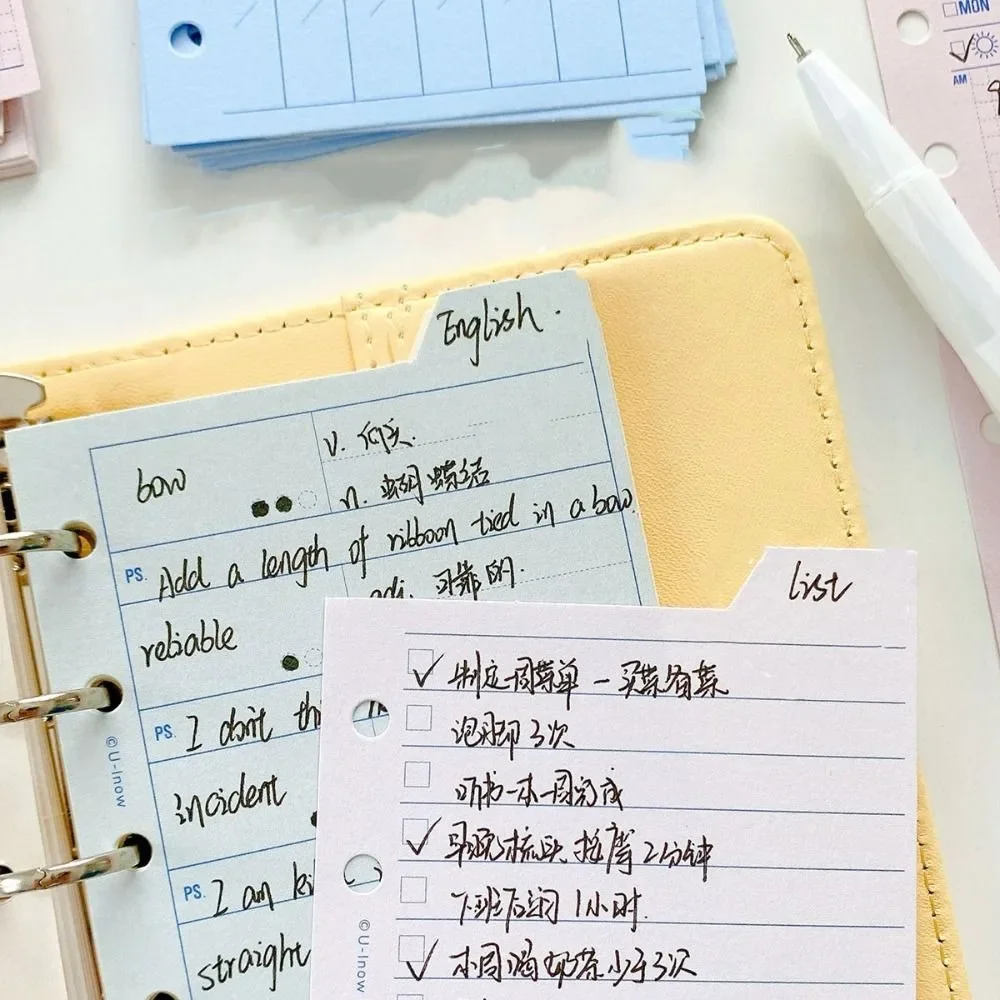 MON
AM
English.
bow
v. 低头
n. 蝴蝶结
PS. Add a length of ribbon tied in a bow.
adj. 可靠的.
reliable
PS. I don't thi
incident
PS. I am ki
straight
©U-Inow
list
制定一周菜单 - 买菜备菜
泡脚3次
听书一本一周完成
早晚梳头按摩2分钟
下班后阅1小时.
本周喝奶茶少于3次
©U-Inow